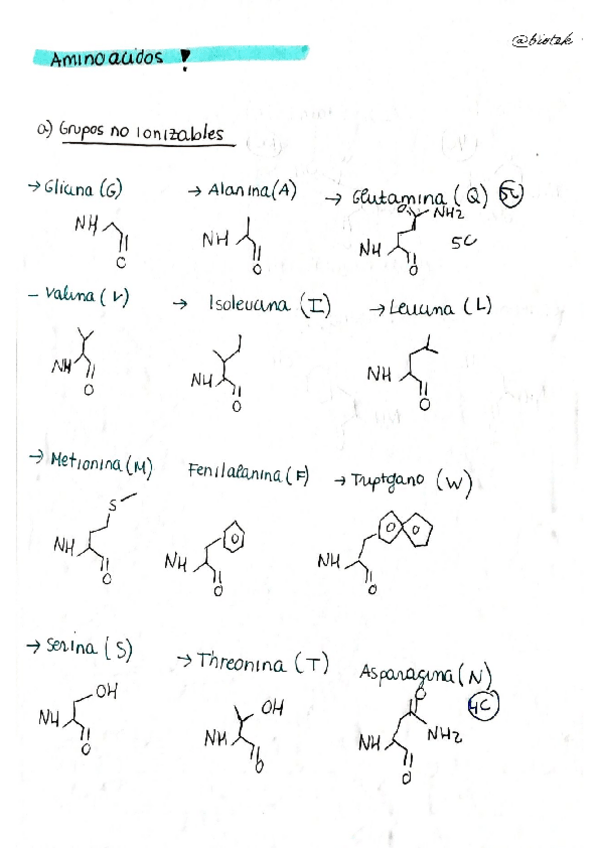 @biotek
Aminoacidos !
a) Grupos no Ionizables
→ Glicina (G)
→ Alanina (A)
→ Glutamina (Q) 5C
NH
O
NH
O
O
NH2
NH
O
5C
- Valina (V)
→ Isoleucina (I)
→ Leucina (L)
NH
O
NH
O
NH
O
→ Metionina (M)
Fenilalanina (F)
→ Triptofano (W)
S
NH
O
NH
O
NH
O
→ Serina (S)
→ Threonina (T)
Asparagina (N)
4C
OH
NH
O
OH
NH
O
O
NH2
NH
O